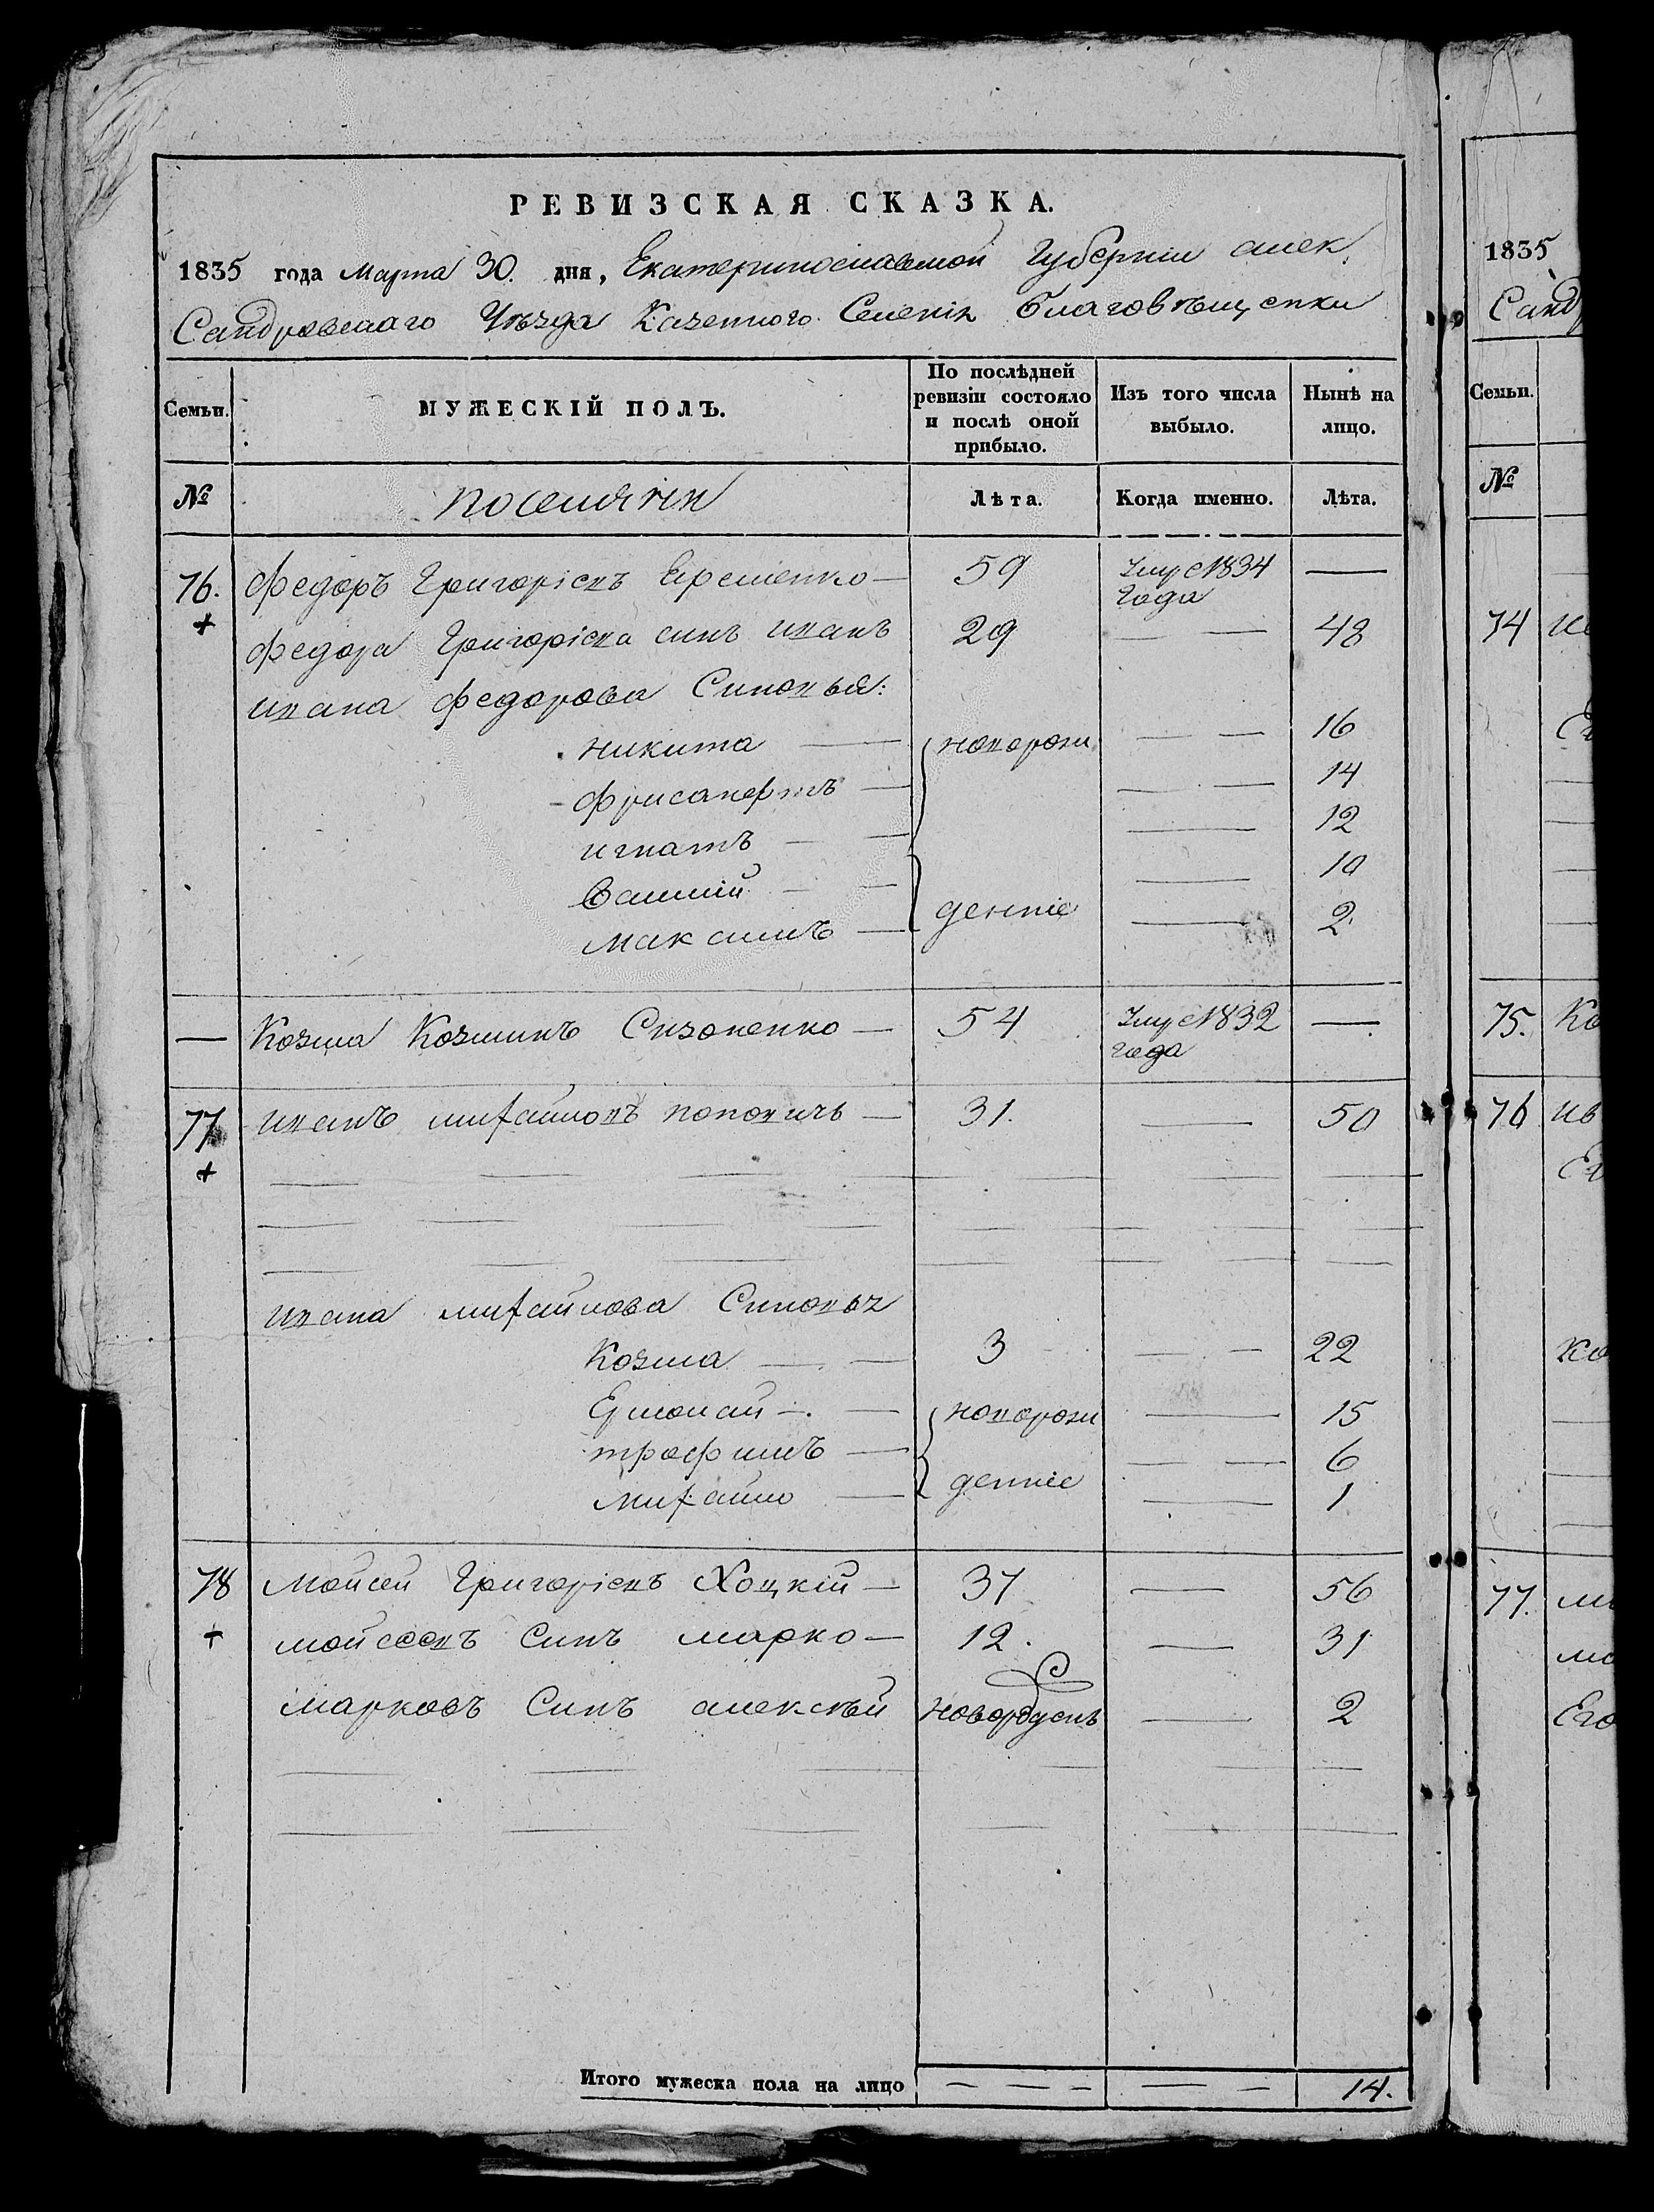 РЕВИЗСКАЯ СКАЗКА.
1835 года Марта 30. дня, Екатеринославской Губернiи алек
Сандровскаго Уѣзда Казенного Селенiя Благовѣщенки
Семьи. МУЖЕСКІЙ ПОЛЪ. По послѣдней ревизіи состояло и послѣ оной прибыло. Изъ того числа выбыло. Нынѣ на лицо.
№ поселянiя Лѣта. Когда именно. Лѣта.
76. Федоръ Григорiевъ Еременко — 59 1834 Года —
+ Федора Григорiева синъ иванъ 29 — — 48
ивана Федорова Синовья:
никита — новорож — — 16
— — 14
игнатъ — — — 12
Василiй — — — 10
максимъ — денніе — 2
— Козма Козминъ Сизоненко — 54 1832 года —
77 иванъ михайловъ поповичъ — 31. — 50
+
ивана михайлова Синовья
Козма — — 3 — — 22
Ермолай — — новорож — 15
трофимъ — — — 6
михайло — денніе — 1
78 Мойсей Григорiевъ Хоцкiй — 37 — 56
+ мойсеевъ Синъ марко — 12. — 31
марковъ Синъ алексѣй новорожденъ — 2
Итого мужеска пола на лицо — — — — — 14.
1835
Санд
Семьи.
№
74
75. Ко
76 ив
ко
77.
Его